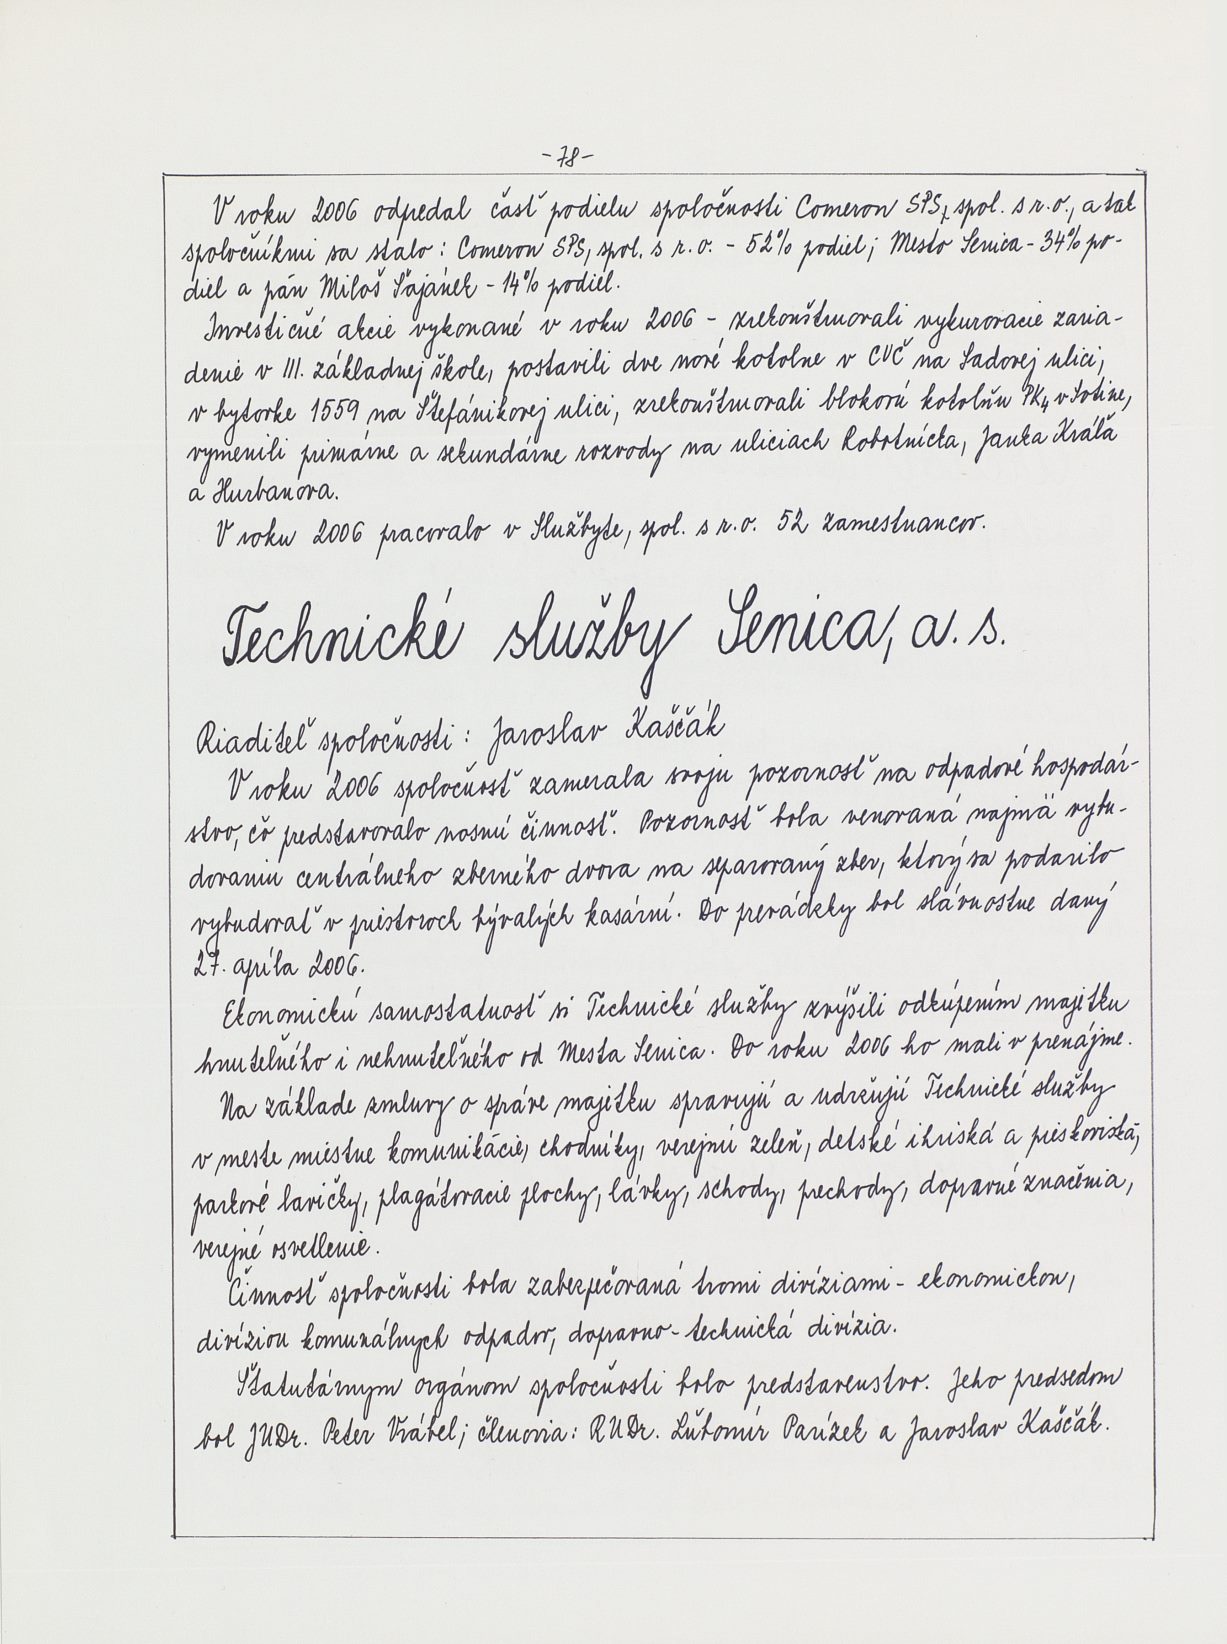 - 78 -
V roku 2006 odpredal časť podielu spoločnosti Comeron SPS, spol. s r.o., a tak
spoločníkmi sa stalo: Comeron SPS, spol. s r. o. - 52% podiel; Mesto Senica - 34% po-
diel a pán Miloš Šajánek - 14% podiel.
Investičné akcie vykonané v roku 2006 - zrekonštruovali vykurovacie zaria-
denie v III. základnej škole, postavili dve nové kotolne v CVČ na Sadovej ulici,
v bytovke 1559 na Štefánikovej ulici, zrekonštruovali blokovú kotolňu PK4 v Sotine,
vymenili primárne a sekundárne rozvody na uliciach Robotnícka, Janka Kráľa
a Hurbanova.
V roku 2006 pracovalo v Službyte, spol. s r.o. 52 zamestnancov.
Technické služby Senica, a. s.
Riaditeľ spoločnosti: Jaroslav Kaščák
V roku 2006 spoločnosť zamerala svoju pozornosť na odpadové hospodár-
stvo, čo predstavovalo nosnú činnosť. Pozornosť bola venovaná najmä vybu-
dovaniu centrálneho zberného dvora na separovaný zber, ktorý sa podarilo
vybudovať v priestoroch bývalých kasární. Do prevádzky bol slávnostne daný
27. apríla 2006.
Ekonomickú samostatnosť si Technické služby zvýšili odkúpením majetku
hnuteľného i nehnuteľného od Mesta Senica. Do roku 2006 ho mali v prenájme.
Na základe zmluvy o správe majetku spravujú a udržujú Technické služby
v meste miestne komunikácie, chodníky, verejnú zeleň, detské ihriská a pieskoviská,
parkové lavičky, plagátovacie plochy, lávky, schody, prechody, dopravné značenia,
verejné osvetlenie.
Činnosť spoločnosti bola zabezpečovaná tromi divíziami - ekonomickou,
divíziou komunálnych odpadov, dopravno-technická divízia.
Štatutárnym orgánom spoločnosti bolo predstavenstvo. Jeho predsedom
bol JUDr. Peter Vrábel; členovia: RUDr. Ľubomír Parízek a Jaroslav Kaščák.